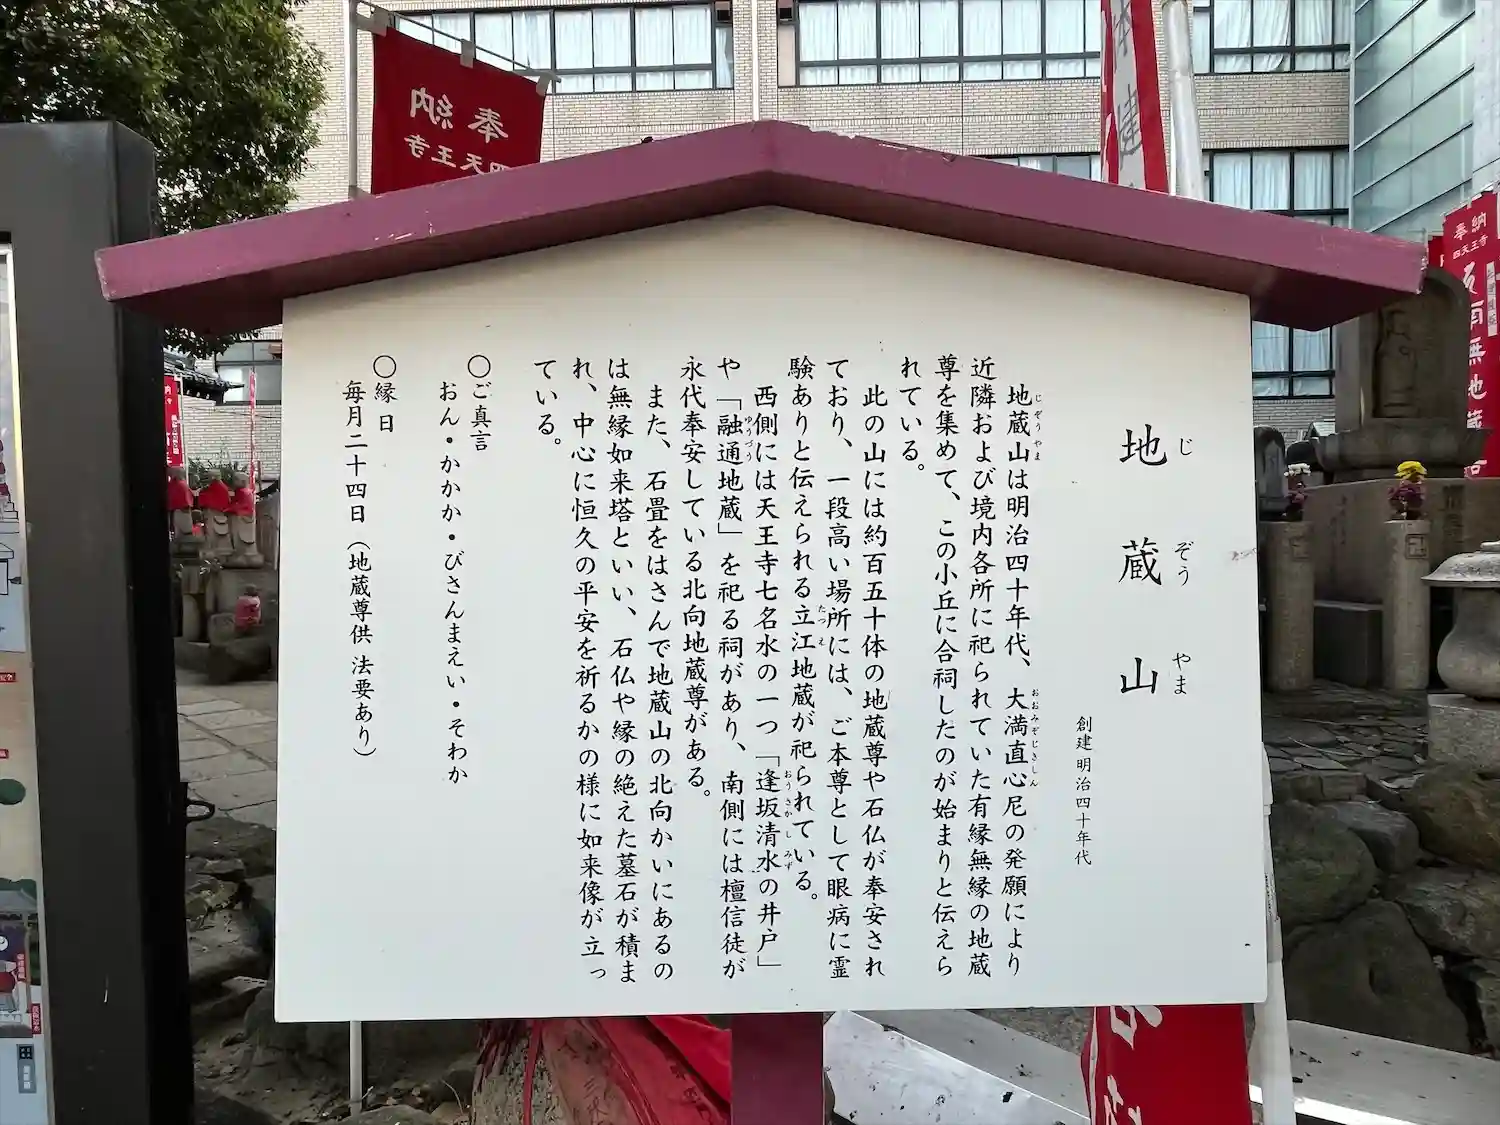 地蔵山
じぞうやま
創建 明治四十年代
地蔵山は明治四十年代、大満直心尼の発願により
じぞうやま
おおみぞじきしん
近隣および境内各所に祀られていた有縁無縁の地蔵
尊を集めて、この小丘に合祠したのが始まりと伝えら
れている。
此の山には約百五十体の地蔵尊や石仏が奉安され
ており、一段高い場所には、ご本尊として眼病に霊
験ありと伝えられる立江地蔵が祀られている。
たつえ
西側には天王寺七名水の一つ「逢坂清水の井戸」
おうさかしみず
や「融通地蔵」を祀る祠があり、南側には檀信徒が
ゆうづう
永代奉安している北向地蔵尊がある。
また、石畳をはさんで地蔵山の北向かいにあるの
は無縁如来塔といい、石仏や縁の絶えた墓石が積ま
れ、中心に恒久の平安を祈るかの様に如来像が立っ
ている。
○ご真言
おん・かかか・びさんまえい・そわか
○縁日
毎月二十四日（地蔵尊供 法要あり）
奉納
四天王寺
奉納
四天王寺
南無地蔵